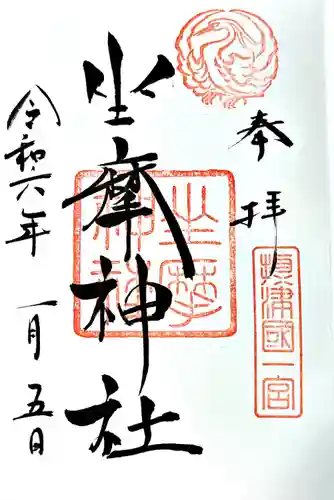 奉拝
摂津國一宮
坐摩神社
坐摩神社
令和六年 一月五日